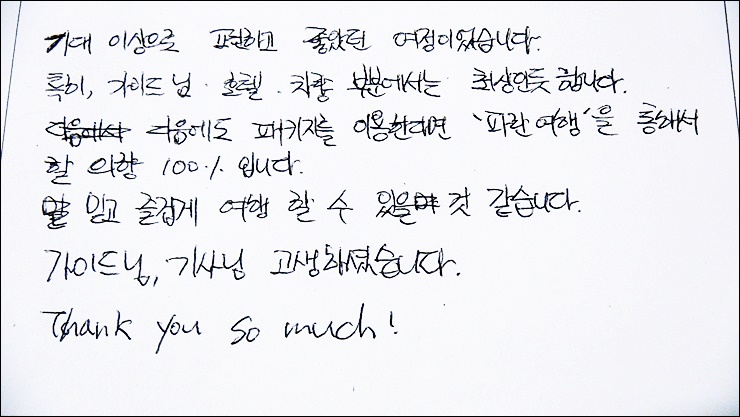 기대 이상으로 편하고 좋았던 여정이었습니다.
특히, 가이드님·호텔·차량 부분에서는 최상인듯 합니다.
다음에도 패키지를 이용한다면 '파란여행'을 통해서
할 의향 100% 입니다.
믿고 즐겁게 여행 할 수 있을 것 같습니다.
가이드님, 기사님 고생하셨습니다.
Thank you so much!